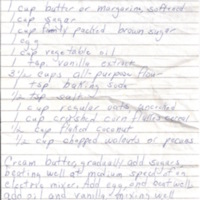 1 cup butter or margarine, softened
1 cup sugar
1 cup firmly packed brown sugar
1 egg
1 cup vegetable oil
1 tsp vanilla extract
3 1/2 cups all-purpose flour
1 tsp baking soda
1/2 tsp salt
1 cup regular oats, uncooked
1 cup crushed corn flakes cereal
1/2 cup flaked coconut
1/2 cup chopped walnuts or pecans
Cream butter, gradually add sugars,
beating well at medium speed of an
electric mixer. Add egg, and beat well,
add oil and vanilla, mixing well